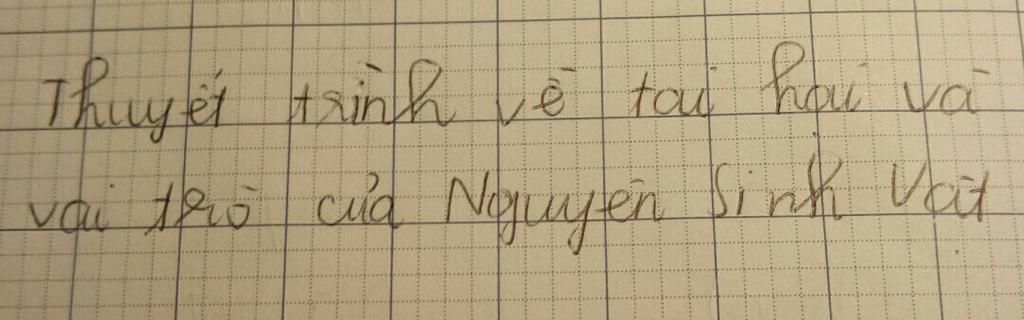 Thuyết trình về tai hại và
vai trò của Nguyên Sinh Vật